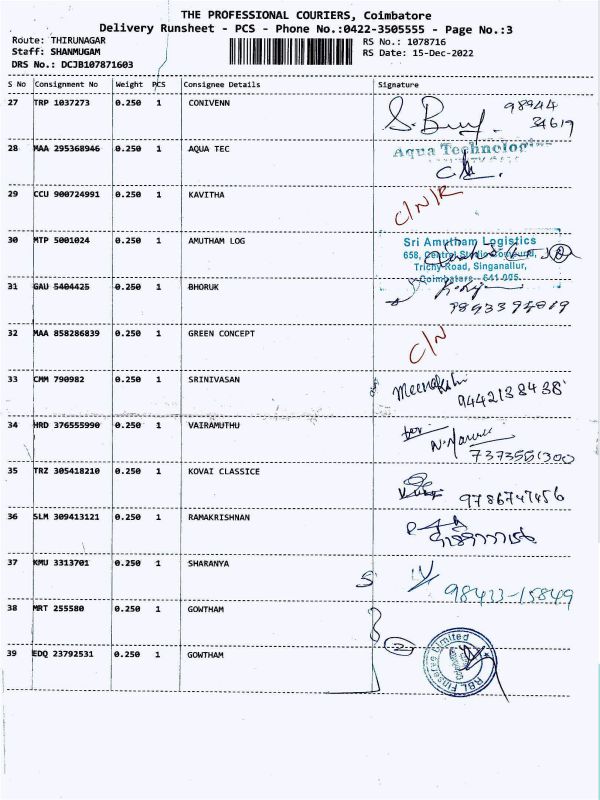 THE PROFESSIONAL COURIERS, Coimbatore
Delivery Runsheet - PCS - Phone No.:0422-3505555 - Page No.:3
Route: THIRUNAGAR
Staff: SHANMUGAM
DRS No.: DCJB107871603
RS No.: 1078716
RS Date: 15-Dec-2022
S No Consignment No Weight PCS Consignee Details Signature
27 TRP 1037273 0.250 1 CONIVENN 98944 34619
28 MAA 295368946 0.250 1 AQUA TEC Aqua Technologies
29 CCU 900724991 0.250 1 KAVITHA C/N/R
30 MTP 5001024 0.250 1 AMUTHAM LOG
Sri Amutham Logistics
658, Central Studio Compound,
Trichy Road, Singanallur,
Coimbatore - 641 005.
31 GAU 5404425 0.250 1 BHORUK
32 MAA 858286839 0.250 1 GREEN CONCEPT C/N
33 CMM 790982 0.250 1 SRINIVASAN Meenakshi 9442138438
34 HRD 376555990 0.250 1 VAIRAMUTHU 7373551300
35 TRZ 305418210 0.250 1 KOVAI CLASSICE 9786747456
36 SLM 309413121 0.250 1 RAMAKRISHNAN
37 KMU 3313701 0.250 1 SHARANYA 98433-15849
38 MRT 255580 0.250 1 GOWTHAM
39 EDQ 23792531 0.250 1 GOWTHAM RBL Finserve Limited